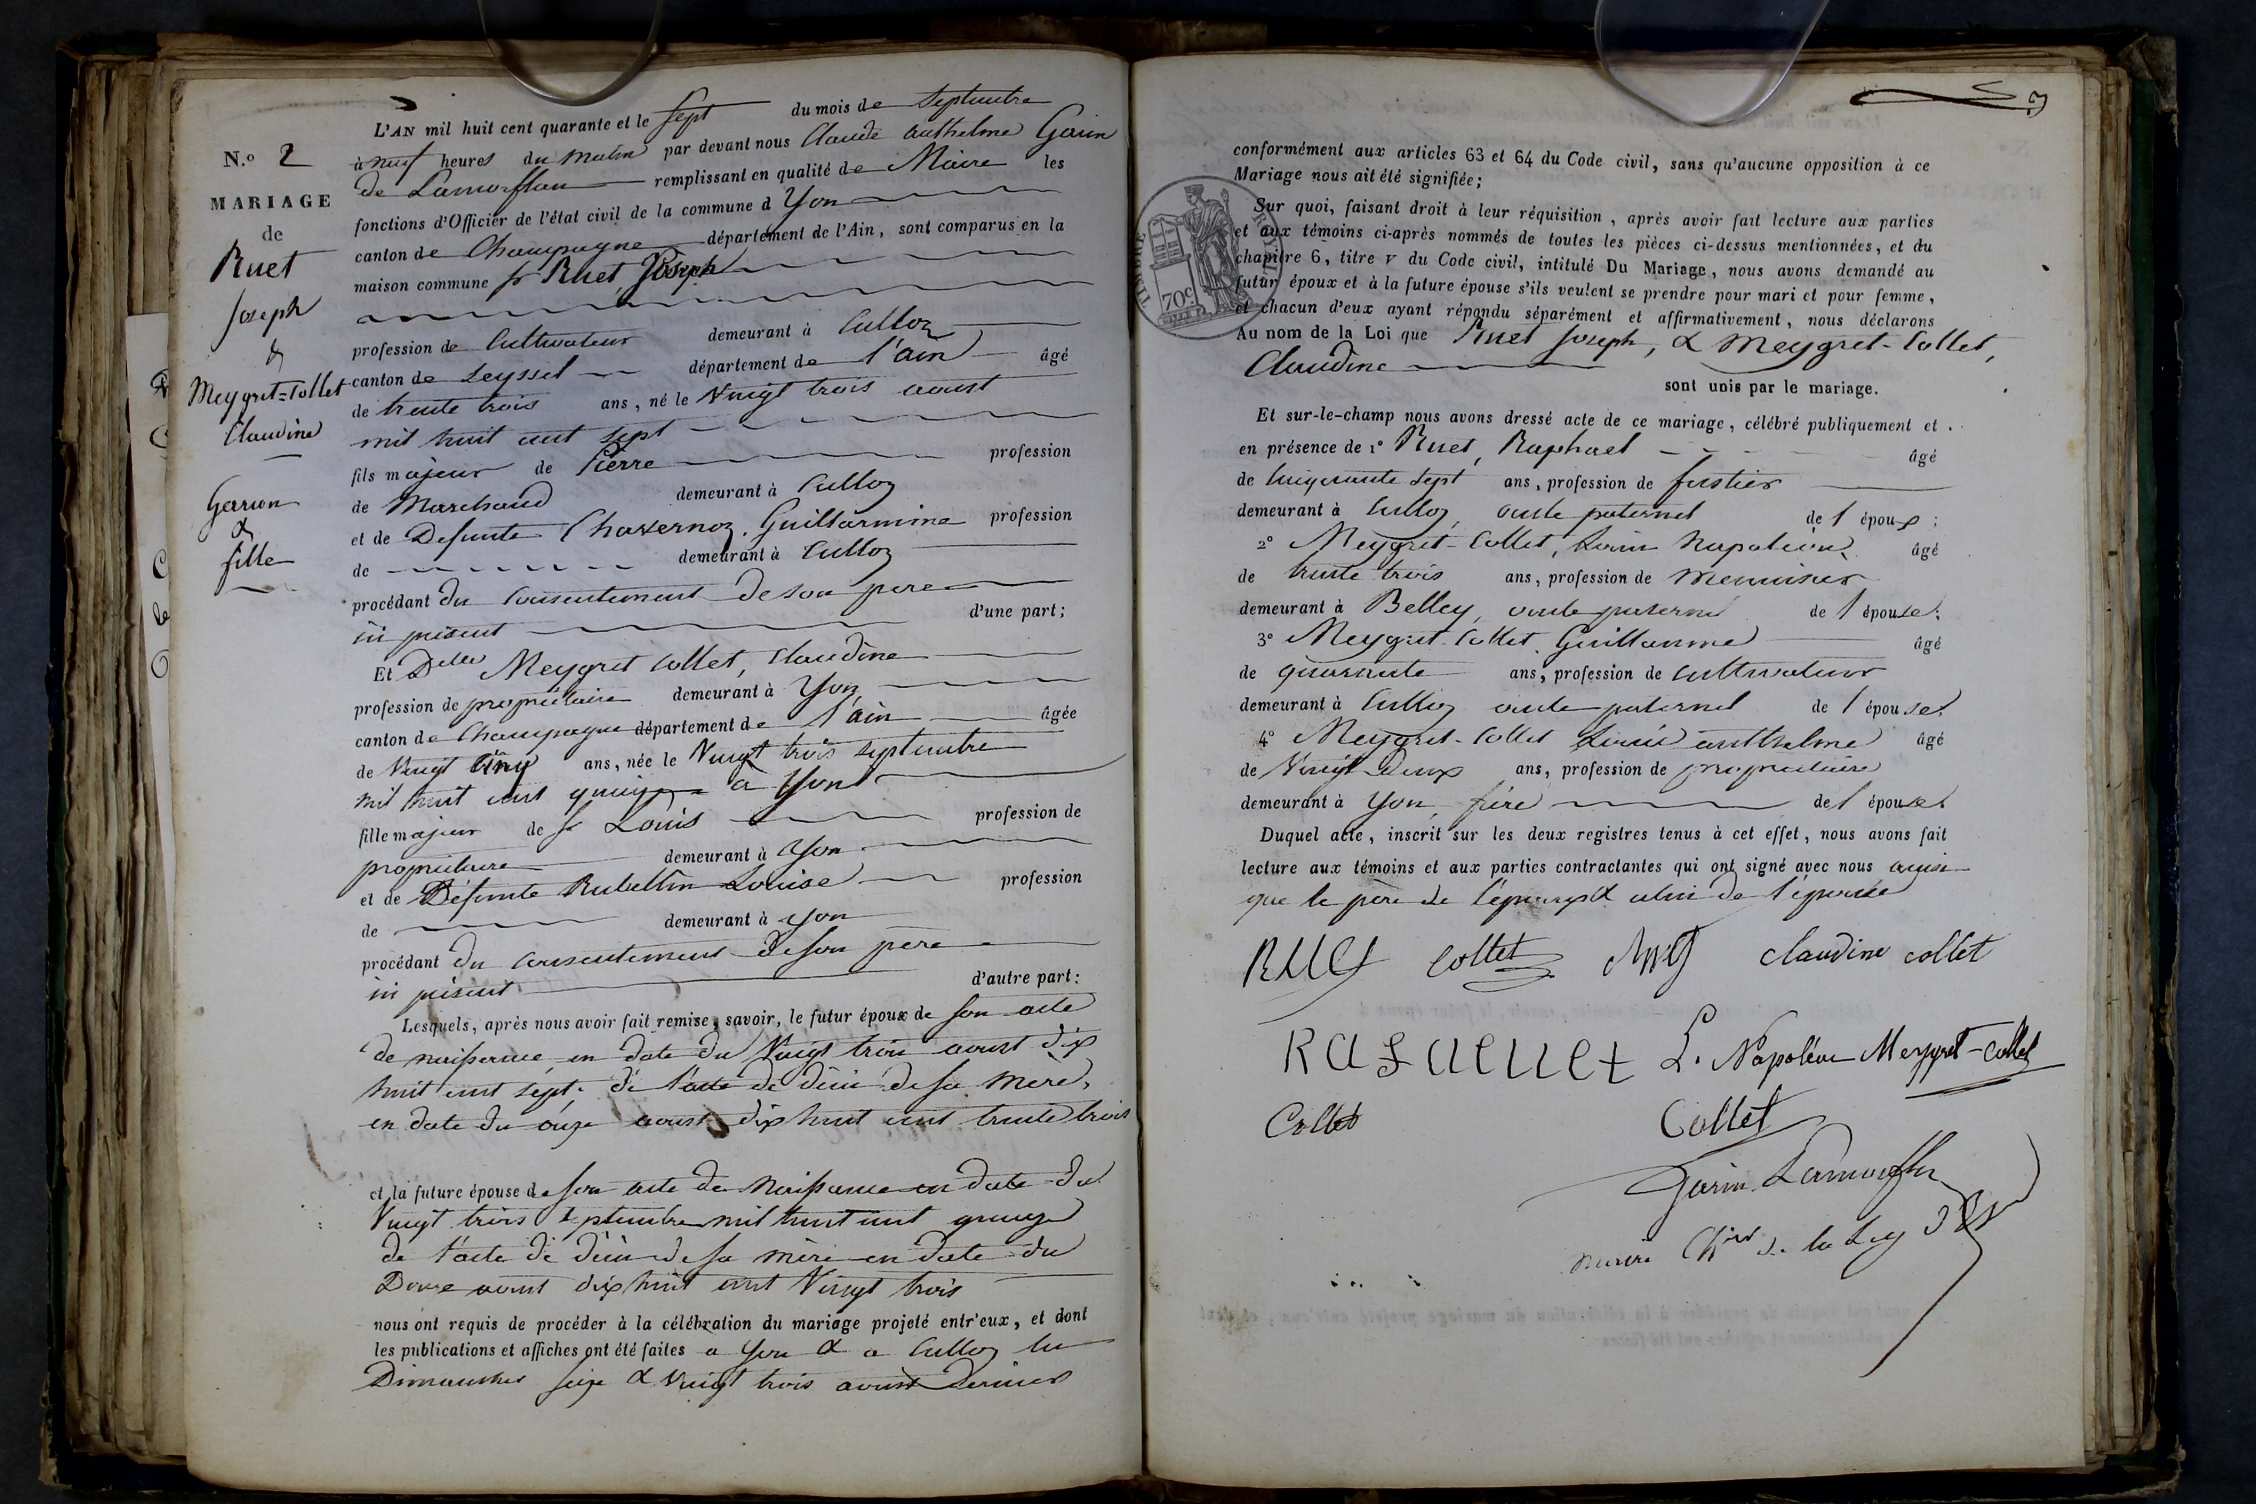 N.º 2
MARIAGE
de
Ruet
Joseph
&
Meygret=Collet
Claudine
Garson
&
fille
L'AN mil huit cent quarante et le sept du mois de septembre
à neuf heures du matin par devant nous Claude anthelme Garin
de Lamorflan remplissant en qualité de Maire les
fonctions d'Officier de l'état civil de la commune d Yon
canton de Champagne département de l'Ain, sont comparus en la
maison commune sr Ruet, Joseph
profession de Cultivateur demeurant à Culloz
canton de Seyssel département de l'ain âgé
de trente trois ans, né le Vingt trois aoust
mil huit cent sept
fils majeur de Pierre profession
de Marchand demeurant à Culloz
et de Defunte Chavernoz Guillarmine profession
de demeurant à Culloz
procédant du consentement de son pere
ici présent d'une part;
Et Delle Meygret Collet, Claudine
profession de propriétaire demeurant à Yon
canton de Champagne département de l'ain âgée
de Vingt Cinq ans, née le Vingt trois septembre
mil huit cent quinze à Yon
fille majeur de sr Louis profession de
propriétaire demeurant à Yon
et de Défunte Rubellin Louise profession
de demeurant à Yon
procédant du consentement de son pere
ici présent d'autre part:
Lesquels, après nous avoir fait remise, savoir, le futur époux de son acte
de naissance en date du Vingt trois aoust dix
huit cent sept. de l'acte de décès de sa mere,
en date du onze aoust dix huit cent trente trois
et la future épouse de son acte de Naissance en date du
Vingt trois septembre mil huit cent quinze
de l'acte de décès de sa mère en date du
Douze aoust dix huit cent Vingt trois
nous ont requis de procéder à la célébration du mariage projeté entr'eux, et dont
les publications et affiches ont été faites a Yon & a Culloz les
Dimanches seize & Vingt trois aoust dernier
3
conformément aux articles 63 et 64 du Code civil, sans qu'aucune opposition à ce
Mariage nous ait été signifiée;
TIMBRE ROYAL
70c
Sur quoi, faisant droit à leur réquisition, après avoir fait lecture aux parties
et aux témoins ci-après nommés de toutes les pièces ci-dessus mentionnées, et du
chapitre 6, titre v du Code civil, intitulé Du Mariage, nous avons demandé au
futur époux et à la future épouse s'ils veulent se prendre pour mari et pour femme,
et chacun d'eux ayant répondu séparément et affirmativement, nous déclarons
Au nom de la Loi que Ruet Joseph, & Meygret-Collet,
Claudine
sont unis par le mariage.
Et sur-le-champ nous avons dressé acte de ce mariage, célébré publiquement et
en présence de 1º Ruet, Raphael âgé
de cinquante sept ans, profession de fustier
demeurant à Culloz, oncle paternel de l époux;
2º Meygret-Collet, Louis Napoléon âgé
de trente trois ans, profession de Menuisier
demeurant à Belley, oncle paternel de l épouse;
3º Meygret-Collet Guillaume âgé
de quarante ans, profession de cultivateur
demeurant à Culloz oncle paternel de l épouse;
4º Meygret-Collet anthelme âgé
de Vingt Deux ans, profession de propriétaire
demeurant à Yon, frère de l épouse.
Duquel acte, inscrit sur les deux registres tenus à cet effet, nous avons fait
lecture aux témoins et aux parties contractantes qui ont signé avec nous ainsi
que le père de l'époux & celui de l'épouse
Ruet collet claudine collet
Rafaeuet L. Napoléon Meygret-Collet
Collet Collet
Garin Lamorflan
maire Chier de la Leg d'H